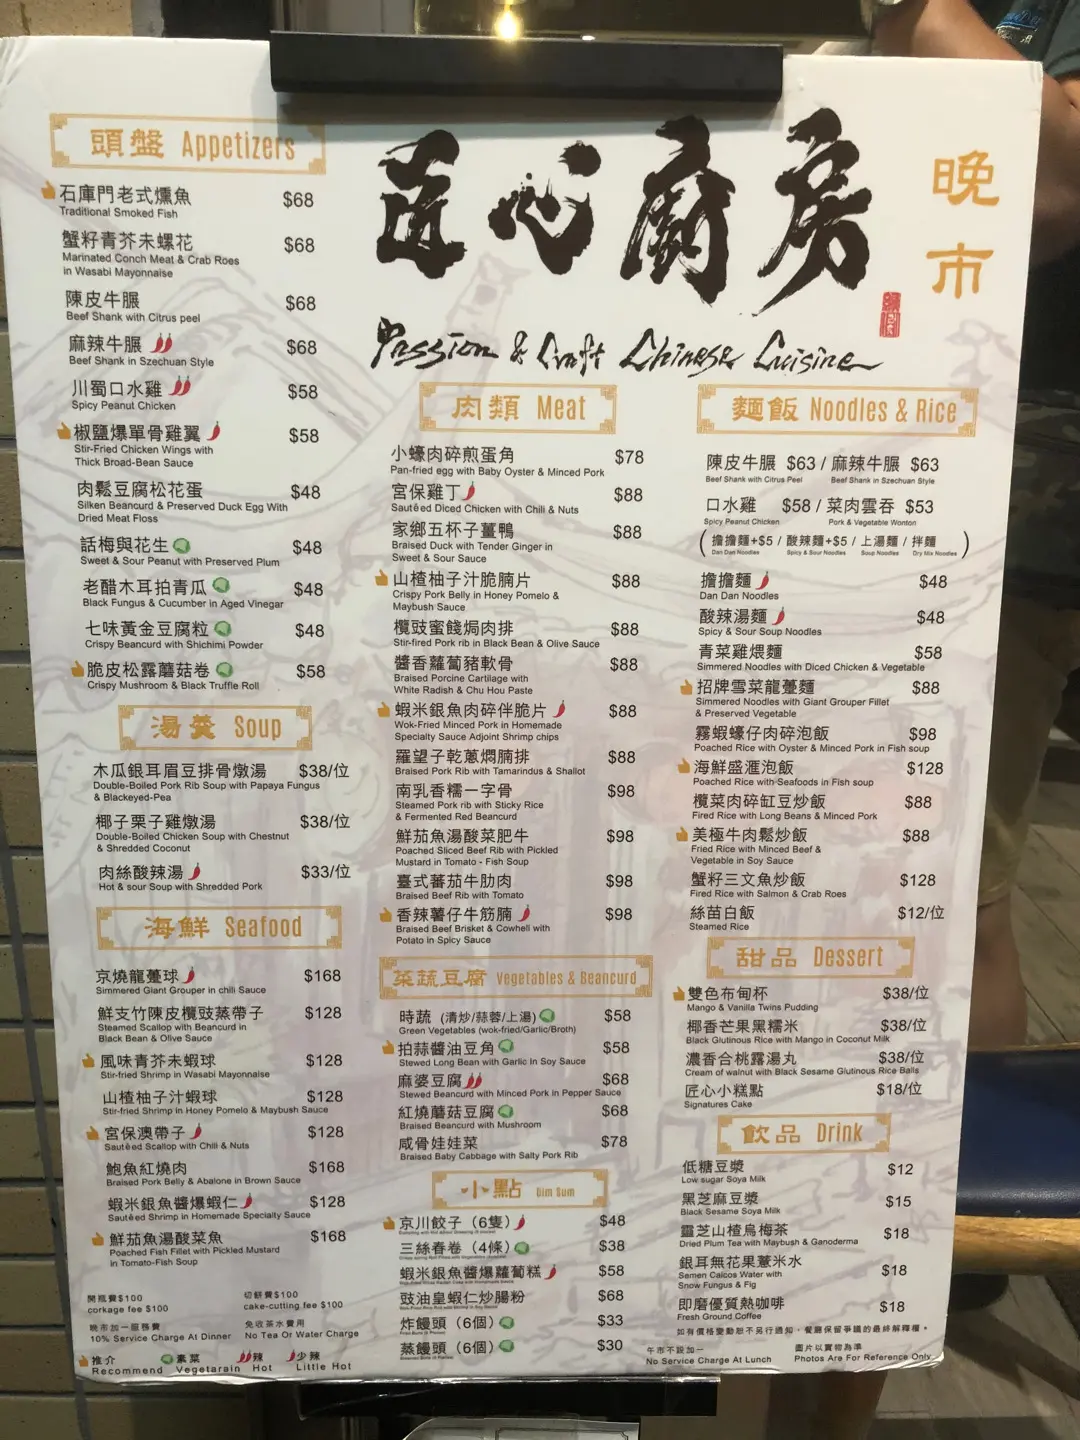 匠心廚房
晚市
Passion & Craft Chinese Cuisine
頭盤 Appetizers
石庫門老式燻魚 $68
Traditional Smoked Fish
蟹籽青芥末螺花 $68
Marinated Conch Meat & Crab Roes
in Wasabi Mayonnaise
陳皮牛𦟌 $68
Beef Shank with Citrus peel
麻辣牛𦟌 $68
Beef Shank in Szechuan Style
川蜀口水雞 $58
Spicy Peanut Chicken
椒鹽爆單骨雞翼 $58
Stir-Fried Chicken Wings with
Thick Broad-Bean Sauce
肉鬆豆腐松花蛋 $48
Silken Beancurd & Preserved Duck Egg With
Dried Meat Floss
話梅與花生 $48
Sweet & Sour Peanut with Preserved Plum
老醋木耳拍青瓜 $48
Black Fungus & Cucumber in Aged Vinegar
七味黃金豆腐粒 $48
Crispy Beancurd with Shichimi Powder
脆皮松露蘑菇卷 $58
Crispy Mushroom & Black Truffle Roll
湯羹 Soup
木瓜銀耳眉豆排骨燉湯 $38/位
Double-Boiled Pork Rib Soup with Papaya Fungus
& Blackeyed-Pea
椰子栗子雞燉湯 $38/位
Double-Boiled Chicken Soup with Chestnut
& Shredded Coconut
肉絲酸辣湯 $33/位
Hot & sour Soup with Shredded Pork
海鮮 Seafood
京燒龍躉球 $168
Simmered Giant Grouper in chili Sauce
鮮支竹陳皮欖豉蒸帶子 $128
Steamed Scallop with Beancurd in
Black Bean & Olive Sauce
風味青芥末蝦球 $128
Stir-fried Shrimp in Wasabi Mayonnaise
山楂柚子汁蝦球 $128
Stir-fried Shrimp in Honey Pomelo & Maybush Sauce
宮保澳帶子 $128
Sautēed Scallop with Chili & Nuts
鮑魚紅燒肉 $168
Braised Pork Belly & Abalone in Brown Sauce
蝦米銀魚醬爆蝦仁 $128
Sautēed Shrimp in Homemade Specialty Sauce
鮮茄魚湯酸菜魚 $168
Poached Fish Fillet with Pickled Mustard
in Tomato-Fish Soup
肉類 Meat
小蠔肉碎煎蛋角 $78
Pan-fried egg with Baby Oyster & Minced Pork
宮保雞丁 $88
Sautēed Diced Chicken with Chili & Nuts
家鄉五杯子薑鴨 $88
Braised Duck with Tender Ginger in
Sweet & Sour Sauce
山楂柚子汁脆腩片 $88
Crispy Pork Belly in Honey Pomelo &
Maybush Sauce
欖豉蜜餞焗肉排 $88
Stir-fired Pork rib in Black Bean & Olive Sauce
醬香蘿蔔豬軟骨 $88
Braised Porcine Cartilage with
White Radish & Chu Hou Paste
蝦米銀魚肉碎伴脆片 $88
Wok-Fried Minced Pork in Homemade
Specialty Sauce Adjoint Shrimp chips
羅望子乾蔥燜腩排 $88
Braised Pork Rib with Tamarindus & Shallot
南乳香糯一字骨 $98
Steamed Pork rib with Sticky Rice
& Fermented Red Beancurd
鮮茄魚湯酸菜肥牛 $98
Poached Sliced Beef Rib with Pickled
Mustard in Tomato - Fish Soup
臺式蕃茄牛肋肉 $98
Braised Beef Rib with Tomato
香辣薯仔牛筋腩 $98
Braised Beef Brisket & Cowheli with
Potato in Spicy Sauce
菜蔬豆腐 Vegetables & Beancurd
時蔬 (清炒/蒜蓉/上湯) $58
Green Vegetables (wok-fried/Garlic/Broth)
拍蒜醬油豆角 $58
Stewed Long Bean with Garlic In Soy Sauce
麻婆豆腐 $68
Stewed Beancurd with Minced Pork In Pepper Sauce
紅燒蘑菇豆腐 $68
Braised Beancurd with Mushroom
咸骨娃娃菜 $78
Braised Baby Cabbage with Salty Pork Rib
小點 Dim Sum
京川餃子 (6隻) $48
三絲春卷 (4條) $38
蝦米銀魚醬爆蘿蔔糕 $58
豉油皇蝦仁炒腸粉 $68
炸饅頭 (6個) $33
蒸饅頭 (6個) $30
麵飯 Noodles & Rice
陳皮牛𦟌 $63 / 麻辣牛𦟌 $63
Beef Shank with Citrus Peel Beef Shank in Szechuan Style
口水雞 $58 / 菜肉雲吞 $53
Spicy Peanut Chicken Pork & Vegetable Wonton
(擔擔麵+$5 / 酸辣麵+$5 / 上湯麵 / 拌麵)
Dan Dan Noodles Spicy & Sour Noodles Soup Noodles Dry Mix Noodles
擔擔麵 $48
Dan Dan Noodles
酸辣湯麵 $48
Spicy & Sour Soup Noodles
青菜雞煨麵 $58
Simmered Noodles with Diced Chicken & Vegetable
招牌雪菜龍躉麵 $88
Simmered Noodles with Giant Grouper Fillet
& Preserved Vegetable
霧蝦蠔仔肉碎泡飯 $98
Poached Rice with Oyster & Minced Pork in Fish soup
海鮮盛滙泡飯 $128
Poached Rice with Seafoods in Fish soup
欖菜肉碎缸豆炒飯 $88
Fired Rice with Long Beans & Minced Pork
美極牛肉鬆炒飯 $88
Fried Rice with Minced Beef &
Vegetable in Soy Sauce
蟹籽三文魚炒飯 $128
Fired Rice with Salmon & Crab Roes
絲苗白飯 $12/位
Steamed Rice
甜品 Dessert
雙色布甸杯 $38/位
Mango & Vanilla Twins Pudding
椰香芒果黑糯米 $38/位
Black Glutinous Rice with Mango in Coconut Milk
濃香合桃露湯丸 $38/位
Cream of walnut with Black Sesame Glutinous Rice Balls
匠心小糕點 $18/位
Signatures Cake
飲品 Drink
低糖豆漿 $12
Low sugar Soya Milk
黑芝麻豆漿 $15
Black Sesame Soya Milk
靈芝山楂烏梅茶 $18
Dried Plum Tea with Maybush & Ganoderma
銀耳無花果薏米水 $18
Semen Caicos Water with
Snow Fungus & Fig
即磨優質熱咖啡 $18
Fresh Ground Coffee
開瓶費$100 切餅費$100
corkage fee $100 cake-cutting fee $100
晚市加一服務費 免收茶水費用
10% Service Charge At Dinner No Tea Or Water Charge
推介 素菜 辣 少辣
Recommend Vegetarain Hot Little Hot
如有價格變動恕不另行通知，餐廳保留爭議的最終解釋權。
午市不設加一 圖片以實物為準
No Service Charge At Lunch Photos Are For Reference Only